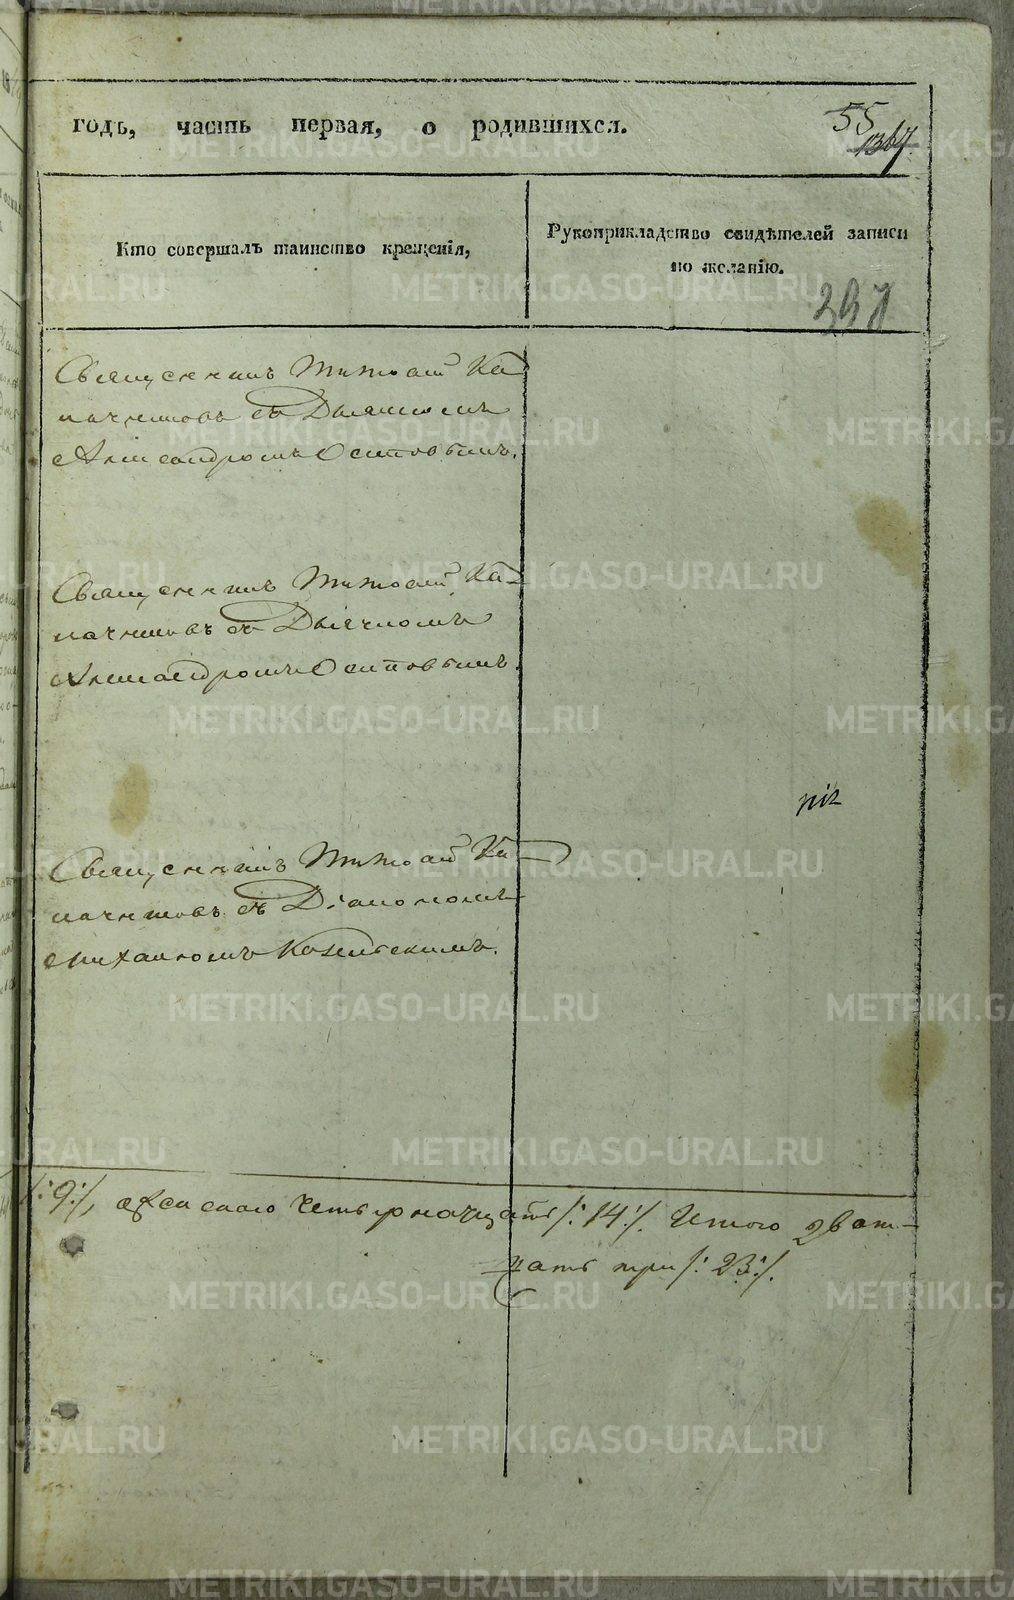 годъ, часть первая, о родившихся.
55
1367
Кто совершалъ таинство крещенія,
Рукоприкладство свидѣтелей записи
по желанію.
397
Священникъ Тимофей Ка
пачинсковъ съ Дьячкомъ
Александромъ Осиповымъ.
Священникъ Тимофей Ка-
съ Дьячкомъ
Александромъ Осиповымъ.
Священникъ Тимофей Ка
съ Діакономъ
Михаиломъ Козельскимъ.
/:9:/, женскаго четырнадцать /:14:/. Итого двад-
цать три /:23:/.
METRIKI.GASO-URAL.RU